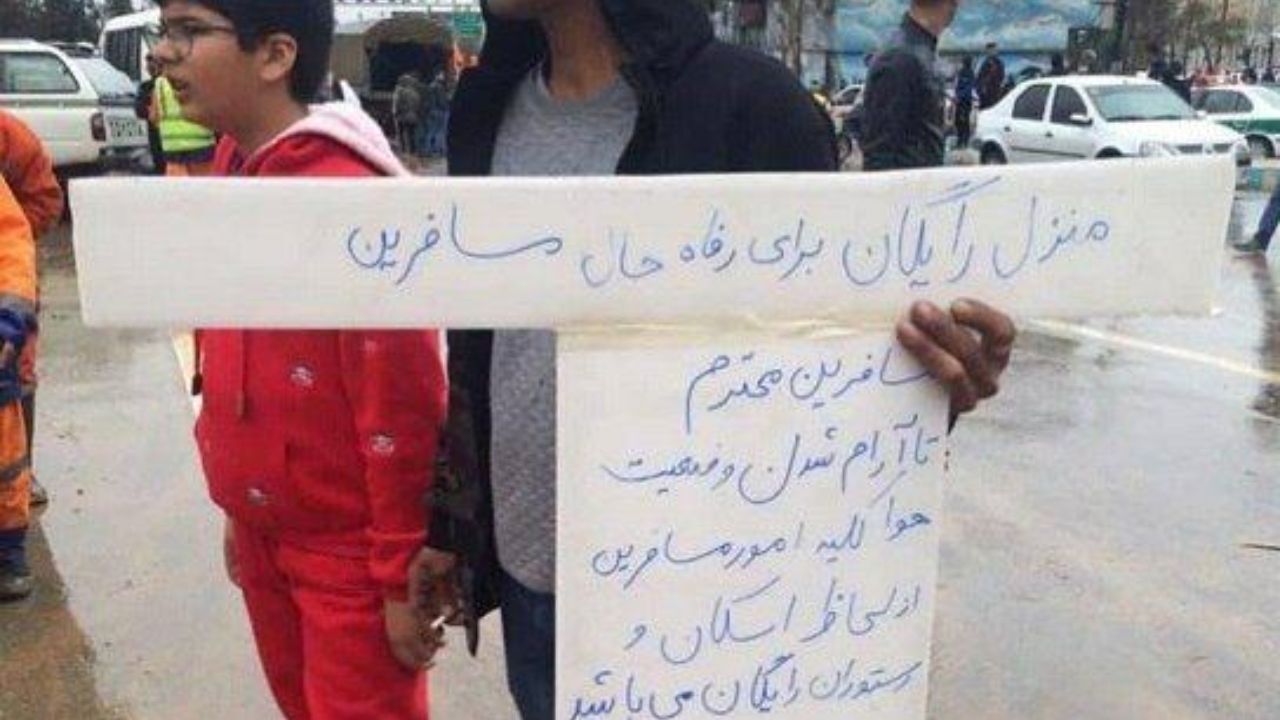 منزل رایگان برای رفاه حال مسافرین
مسافرین محترم
تا آرام شدن وضعیت
هوا کلیه امور مسافرین
از لحاظ اسکان و
رستوران رایگان می باشد